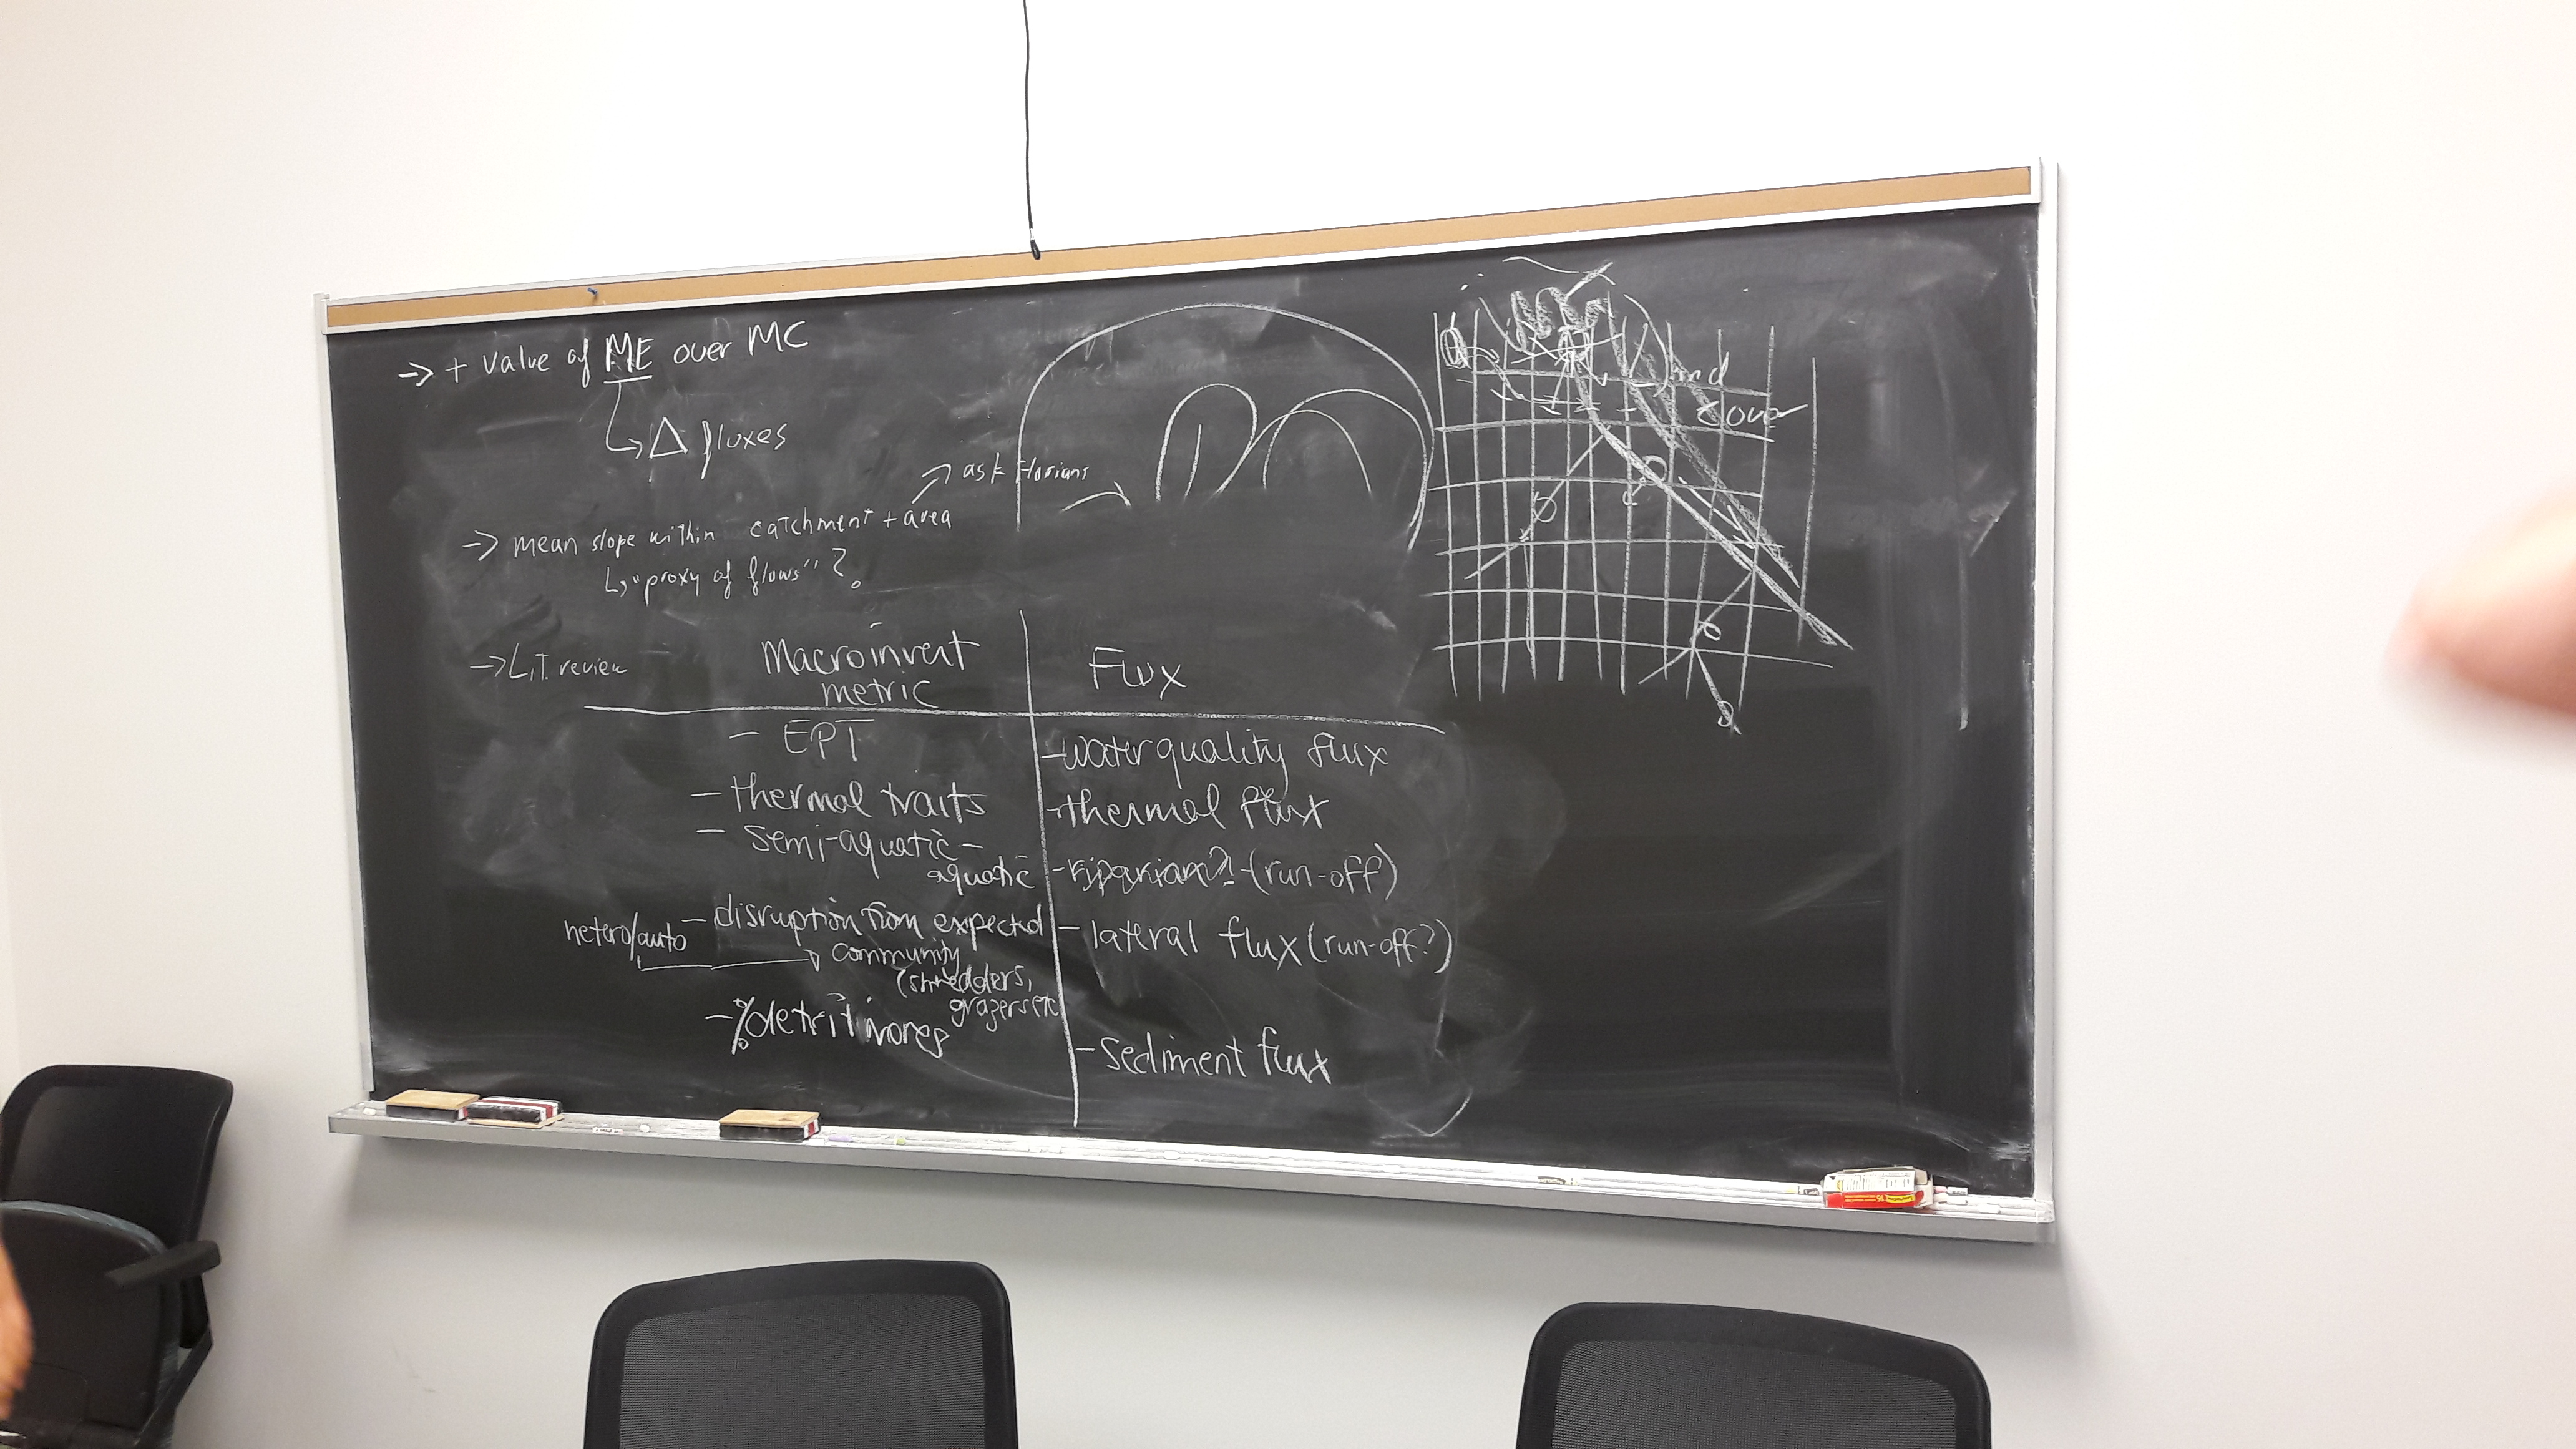 -> + value of ME over MC
↳ Δ fluxes
-> mean slope within catchment + area
↗ ask Florians
↳ "proxy of flows" ?
-> Lit. review
Macroinvert
metric
Flux
- EPT
- water quality flux
- thermal traits
- thermal flux
- semi-aquatic -
aquatic
- riparian?! (run-off)
hetero/auto
- disruption from expected
community
(shredders,
grazers etc
- lateral flux (run-off?)
- % detritivores
- sediment flux
Land
cover